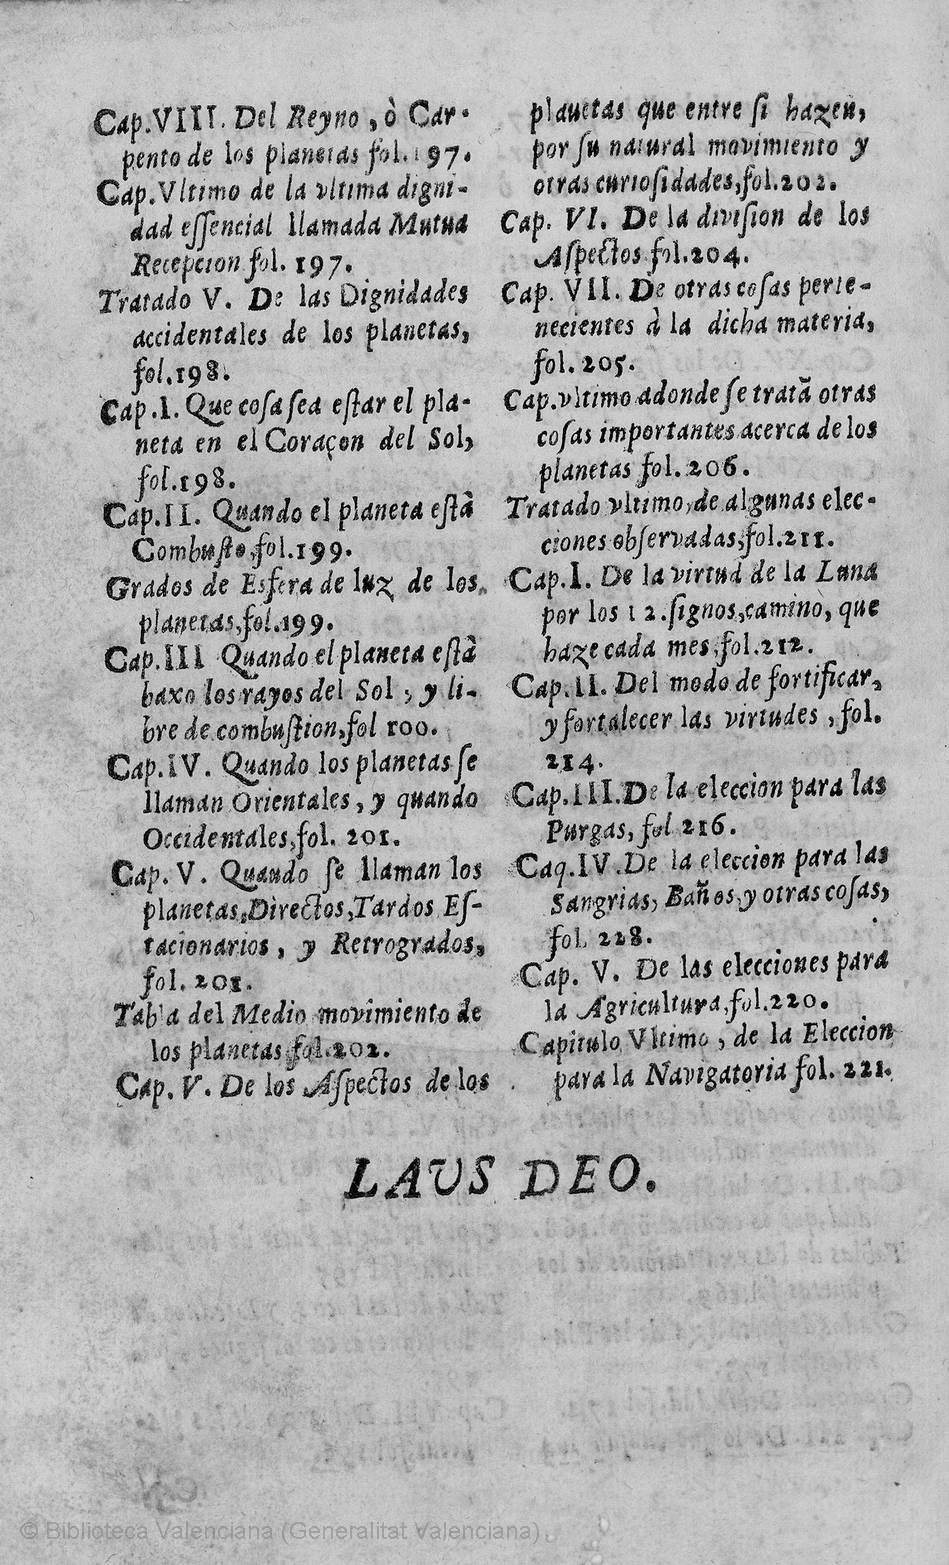 Cap.VIII. Del Reyno, ò Car-
pento de los planetas fol. 197.
Cap.Vltimo de la vltima digni-
dad eſſencial llamada Mutua
Recepcion fol. 197.
Tratado V. De las Dignidades
accidentales de los planetas,
fol.198.
Cap.I. Que coſa ſea eſtar el pla-
neta en el Coraçon del Sol,
fol.198.
Cap.II. Quando el planeta eſtà
Combuſto,fol.199.
Grados de Esfera de luz de los
planetas,fol.199.
Cap.III Quando el planeta eſtà
baxo los rayos del Sol, y li-
bre de combuſtion,fol 100.
Cap.IV. Quando los planetas ſe
llaman Orientales, y quando
Occidentales,fol. 201.
Cap. V. Quando ſe llaman los
planetas,Directos,Tardos Eſ-
tacionarios, y Retrogrados,
fol. 201.
Tabla del Medio movimiento de
los planetas,fol.202.
Cap. V. De los Aſpectos de los
planetas que entre ſi hazen,
por ſu natural movimiento y
otras curioſidades,fol.202.
Cap. VI. De la diviſion de los
Aſpectos fol.204.
Cap. VII. De otras coſas perte-
necientes à la dicha materia,
fol. 205.
Cap.vltimo adonde ſe tratã otras
coſas importantes acerca de los
planetas fol. 206.
Tratado vltimo,de algunas elec-
ciones obſervadas,fol.211.
Cap.I. De la virtud de la Luna
por los 12.ſignos,camino, que
haze cada mes,fol.212.
Cap.II. Del modo de fortificar,
y fortalecer las virtudes, fol.
214.
Cap.III.De la eleccion para las
Purgas, fol 216.
Caq.IV.De la eleccion para las
Sangrias, Baños,y otras coſas,
fol. 228.
Cap. V. De las elecciones para
la Agricultura,fol.220.
Capitulo Vltimo, de la Eleccion
para la Navigatoria fol. 221.
LAUS DEO.
© Biblioteca Valenciana (Generalitat Valenciana)